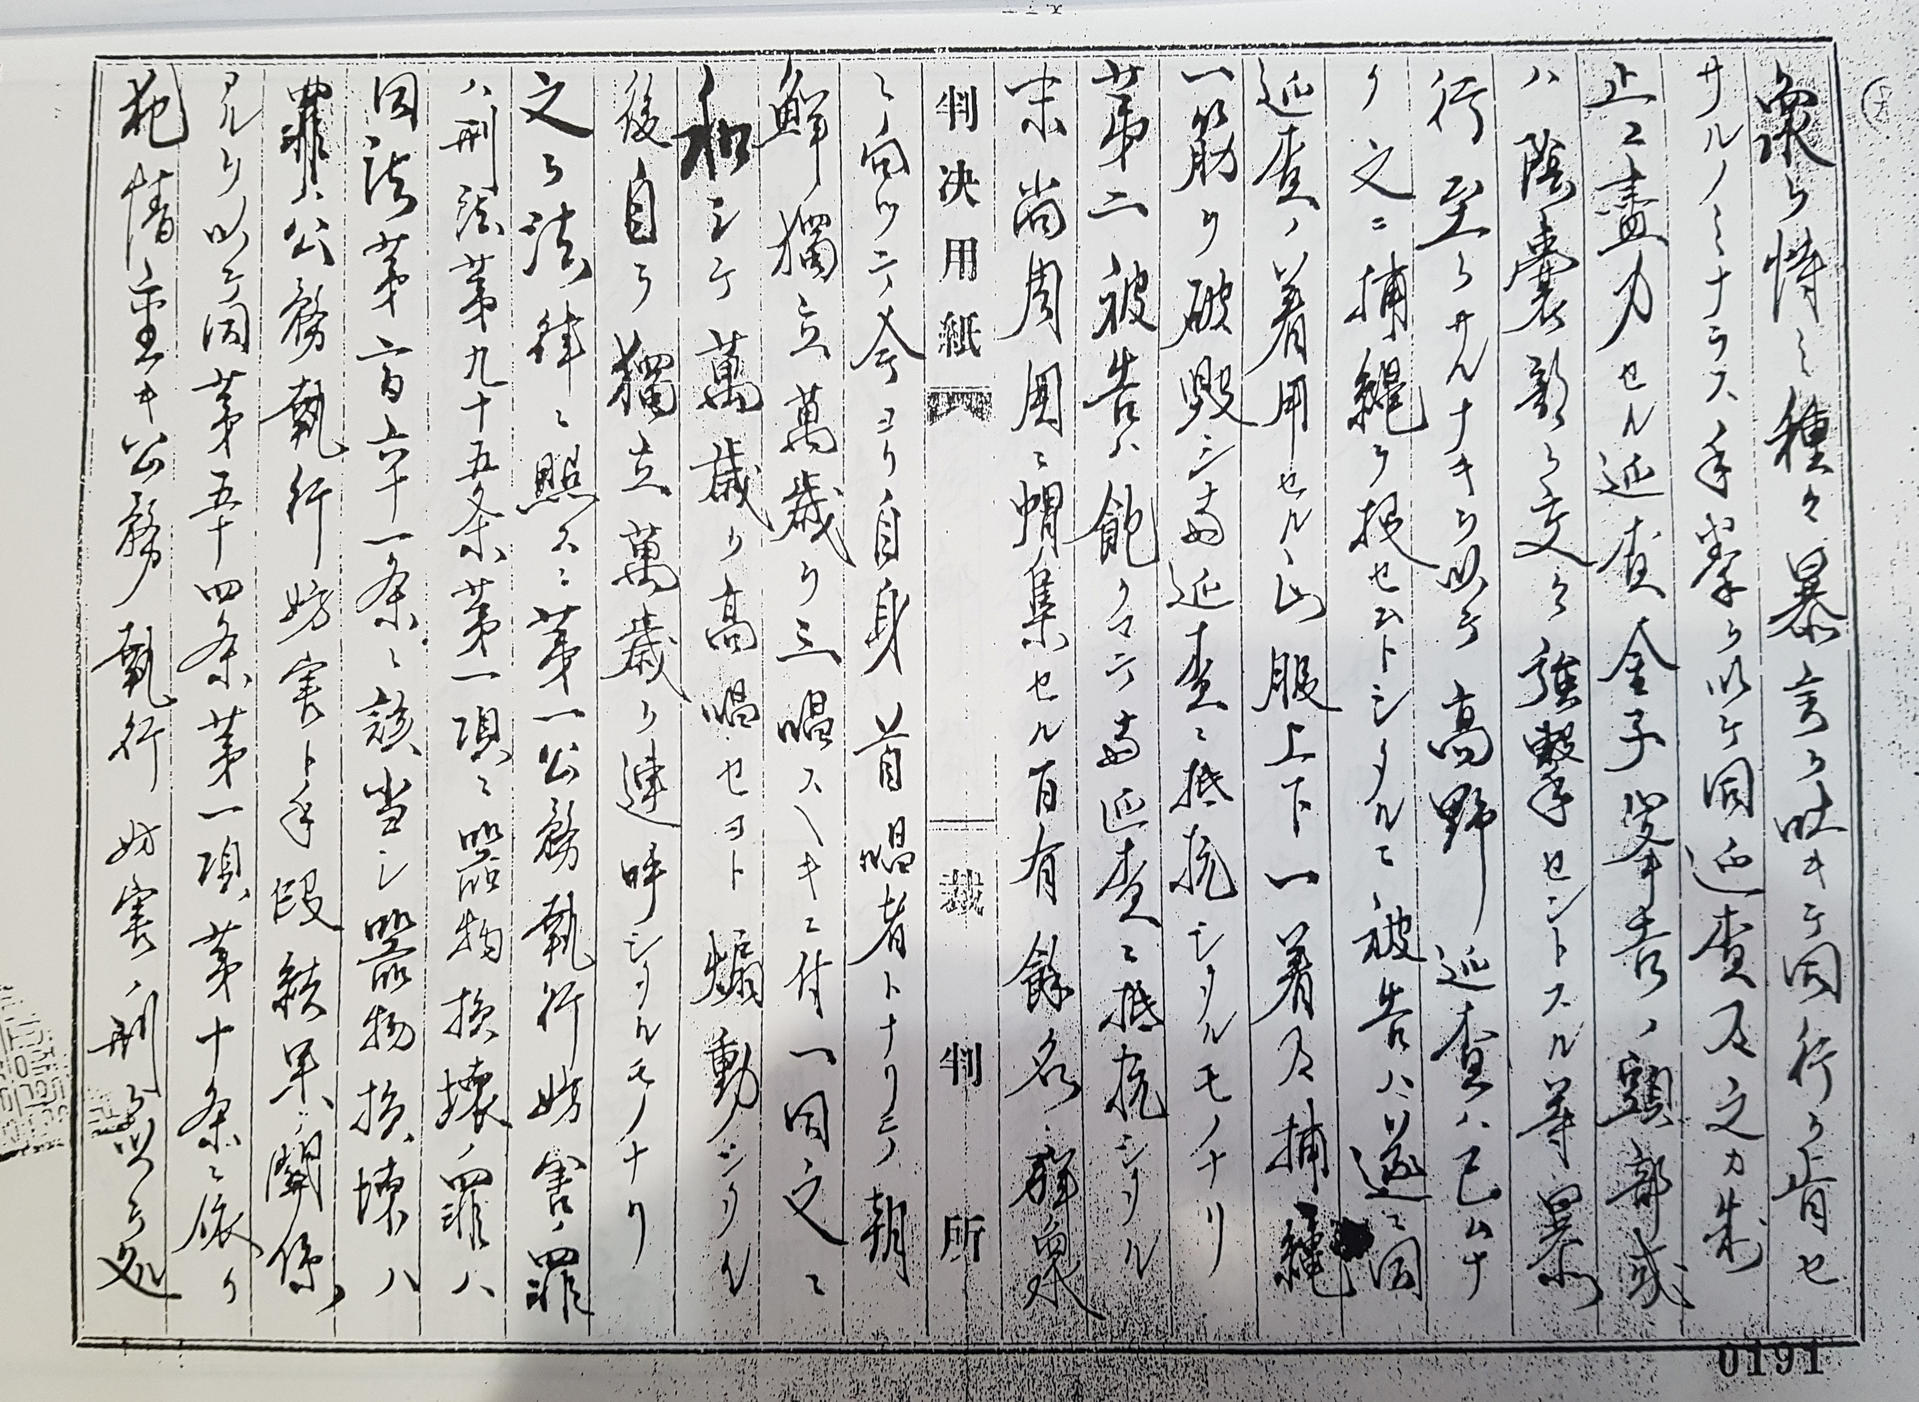 衆ヲ恃ミ種々暴言ヲ吐キテ同行ヲ肯セ
サルノミナラス手拳ヲ以テ同巡査及之カ制
止ニ盡力セル巡査金子峯吉ノ頭部或
ハ陰嚢部ヲ交々強撃セントスル等暴
行至ラサルナキヲ以テ高野巡査ハ已ムナ
ク之ニ捕縄ヲ投セムトシタルニ被告ハ遂ニ同
巡査ノ着用セル山服上下一着及捕縄
一筋ヲ破毀シ尚巡査ニ抵抗シタルモノナリ
第二被告ハ飽クマテ尚巡査ニ抵抗シタル
末尚周圍ニ蝟集セル百有餘名ノ群衆
判決用紙
裁判所
ニ向ツテ今ヨリ自身首唱者トナリテ朝
鮮獨立萬歳ヲ三唱スヘキニ付一同之ニ
和シテ萬歳ヲ高唱セヨト煽動シタル
後自ラ獨立萬歳ヲ連呼シタルモノナリ
之ヲ法律ニ照スニ第一公務執行妨害ノ罪
ハ刑法第九十五条第一項ニ器物損壊ノ罪ハ
同法第二百六十一条ニ該当シ器物損壊ハ
罪ハ公務執行妨害ト手段結果ノ関係
アルヲ以テ同第五十四条第一項第十条ニ依リ
犯情重キ公務執行妨害ノ刑ヲ以テ処
0191